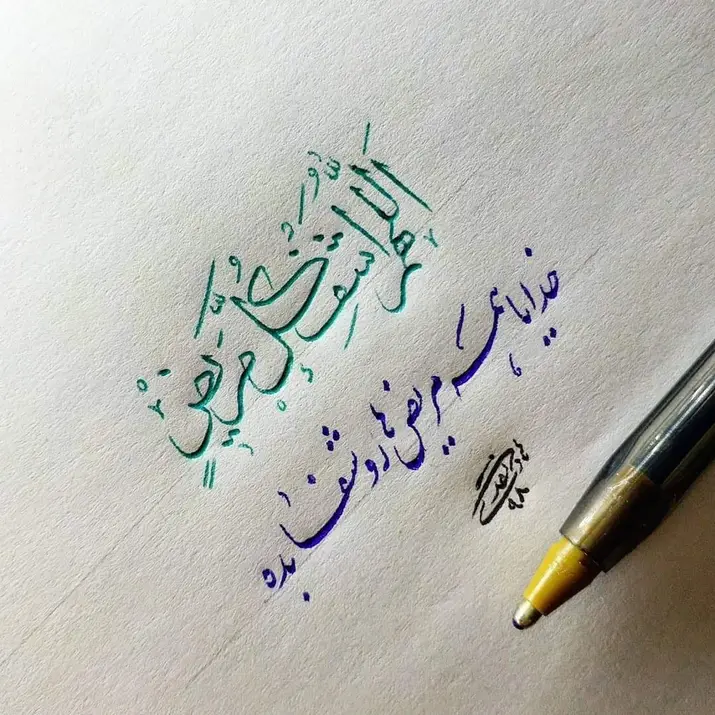 اللّهُمَّ اشْفِ كُلَّ مَريضٍ
خدایا همه مریض ها رو شفا بده
۹۸